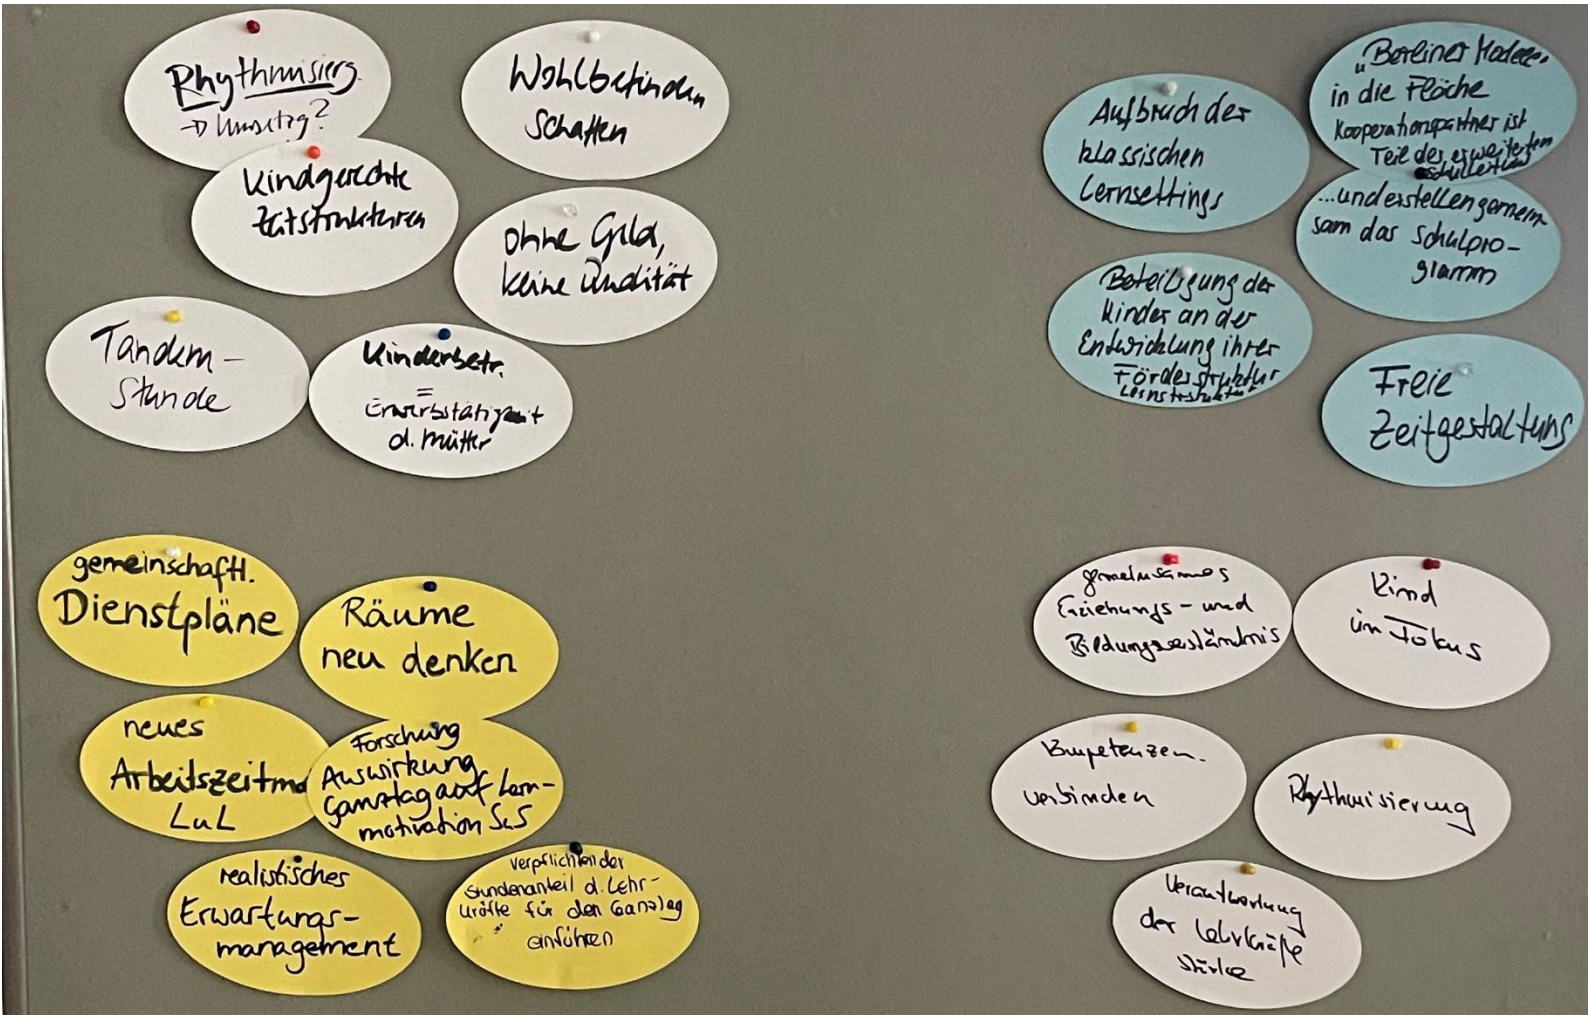 Rhythmisierg.
→ Umsetzg?
Kindgerechte
Zeitstrukturen
Wohlbefinden
schaffen
ohne Geld,
keine Qualität
Tandem-
Stunde
Kinderbetr.
=
Erwerbstätigkeit
d. Mütter
Aufbruch der
klassischen
Lernsettings
"Berliner Modell"
in die Fläche
Kooperationspartner ist
Teil der erweiterten
Schulleitung
...und erstellen gemein-
sam das Schulpro-
gramm
Beteiligung der
Kinder an der
Entwicklung ihrer
Förderstruktur
Freie
Zeitgestaltung
gemeinschaftl.
Dienstpläne
Räume
neu denken
neues
LuL
Forschung
Auswirkung
Ganztag auf Lern-
motivation SuS
realistisches
Erwartungs-
management
verpflichtender
Stundenanteil d. Lehr-
kräfte für den Ganztag
einführen
gemeinsames
Erziehungs- und
Bildungsverständnis
Kind
im Fokus
Kompetenzen
verbinden
Rhythmisierung
Verantwortung
der Lehrkräfte